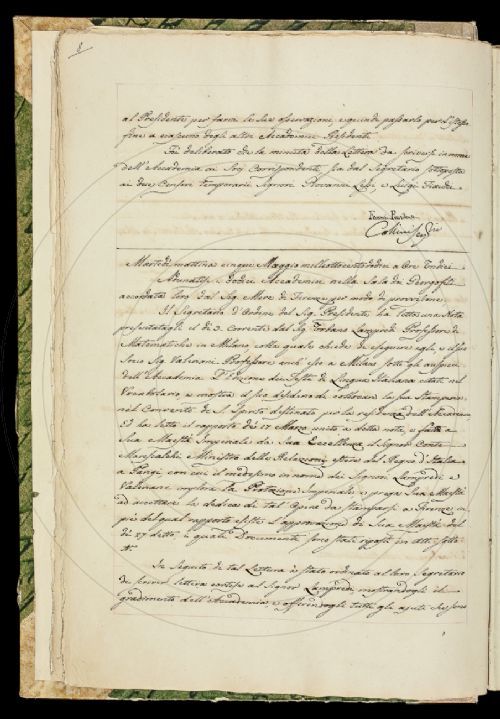 8
al Presidente per farvi le sue osservazioni, e quindi passarlo per l'istesso
fine a ciascuno degli altri Accademici Residenti
Fù deliberato che la minuta della Lettera da scriversi in nome
dell'Accademia ai Socj Corrispondenti sia dal Segretario sottoposta
ai due Censori temporarii Signori Giovanni Lessi, e Luigi Fiacchi.
Collini Seg.rio
Martedì mattina cinque Maggio milleottocentododici a Ore Undici
Adunatisi i Dodici Accademici nella Sala dei Georgofili
accordata loro dal Sig. Mere di Firenze per modo di provvisione
Il Segretario d'Ordine del Sig. Presidente ha letto una Nota
presentatagli il dì 3. Corrente dal Sig. Urbano Lampredi Professore di
Matematiche in Milano colla quale chiede di eseguire egli, e il suo
Socio Sig. Valeriani Professore anch'esso a Milano sotto gli auspici
dell'Accademia l'Edizione dei Testi di Lingua Italiana citati nel
Vocabolario, e mostra il suo desiderio di collocare la sua Stamperia
nel Convento di S. Spirito destinato per la residenza dell'Accademia
Ed ha letto il rapporto de' 17 Marzo unito a detta nota, e fatto a
Sua Maestà Imperiale da Sua Eccellenza il Signor Conte
Marescalchi Ministro delle Relazioni estere del Regno d'Italia
a Parigi con cui il medesimo in nome dei Signori Lampredi, e
Valeriani implora la Protezione Imperiale, e prega Sua Maestà
ad accettare la dedica di tal Opera da stamparsi a Firenze, a
piè del qual rapporto esiste l'approvazione di Sua Maestà del
dì 27 detto, i quali Documenti sono stati riposti in atti sotto
A.
In Seguito di tal Lettura è stato ordinato al loro Segretario
di scriver lettera cortese al Signor Lampredi, mostrandogli il
gradimento dell'Accademia, e offrendogli tutti gli ajuti ch'essere